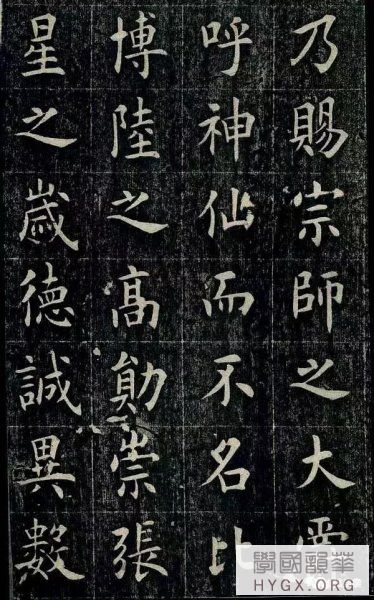 乃賜宗師之大
呼神仙而不名比
博陸之髙勛崇張
星之歲徳誠異數
華韻國學
HYGX.ORG